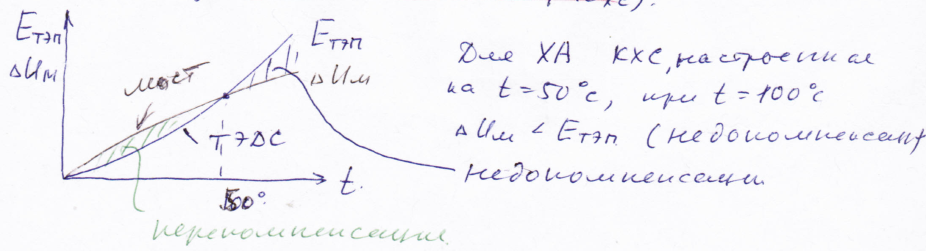 Eтэп
ΔUм
мост
Eтэп
ΔUм
ТЭДС
50°
t.
перекомпенсация
Для ХА КХС, настроенная
на t=50°с, при t=100°с
ΔUм < Eтэп (недокомпенсация
недокомпенсация